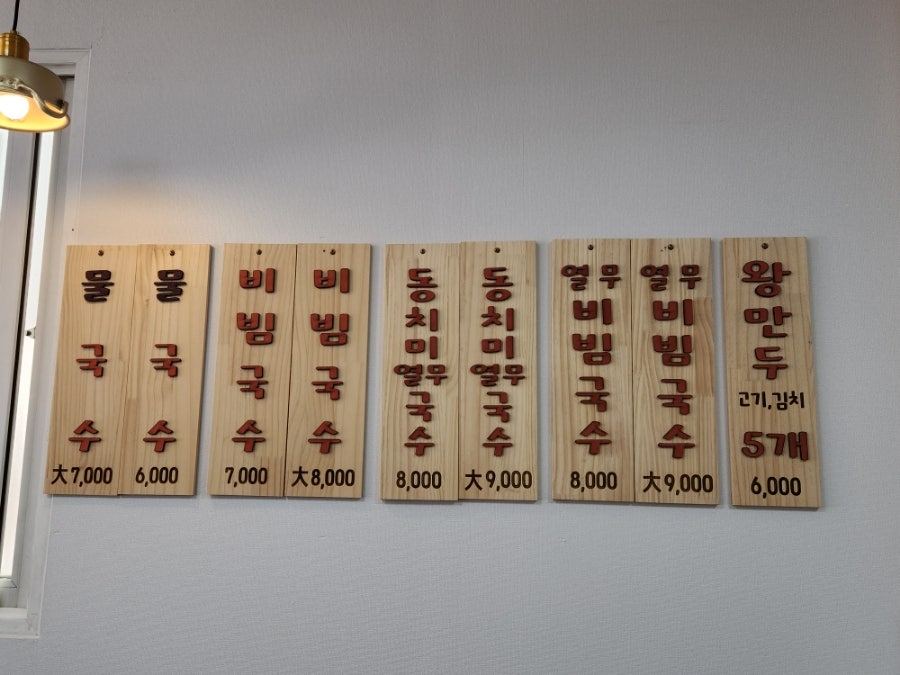 물국수
大7,000
물국수
6,000
비빔국수
7,000
비빔국수
大8,000
동치미열무국수
8,000
동치미열무국수
大9,000
열무비빔국수
8,000
열무비빔국수
大9,000
왕만두
고기,김치
5개
6,000